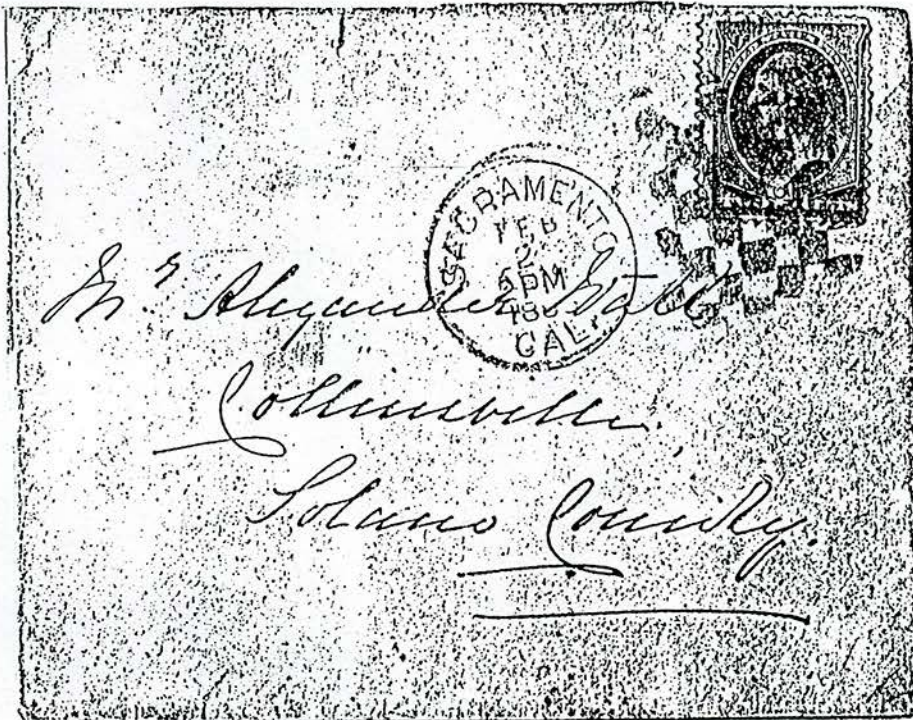 SACRAMENTO
FEB
2
PM
CAL.
Mr Alexander
Collinsville
Solano County.